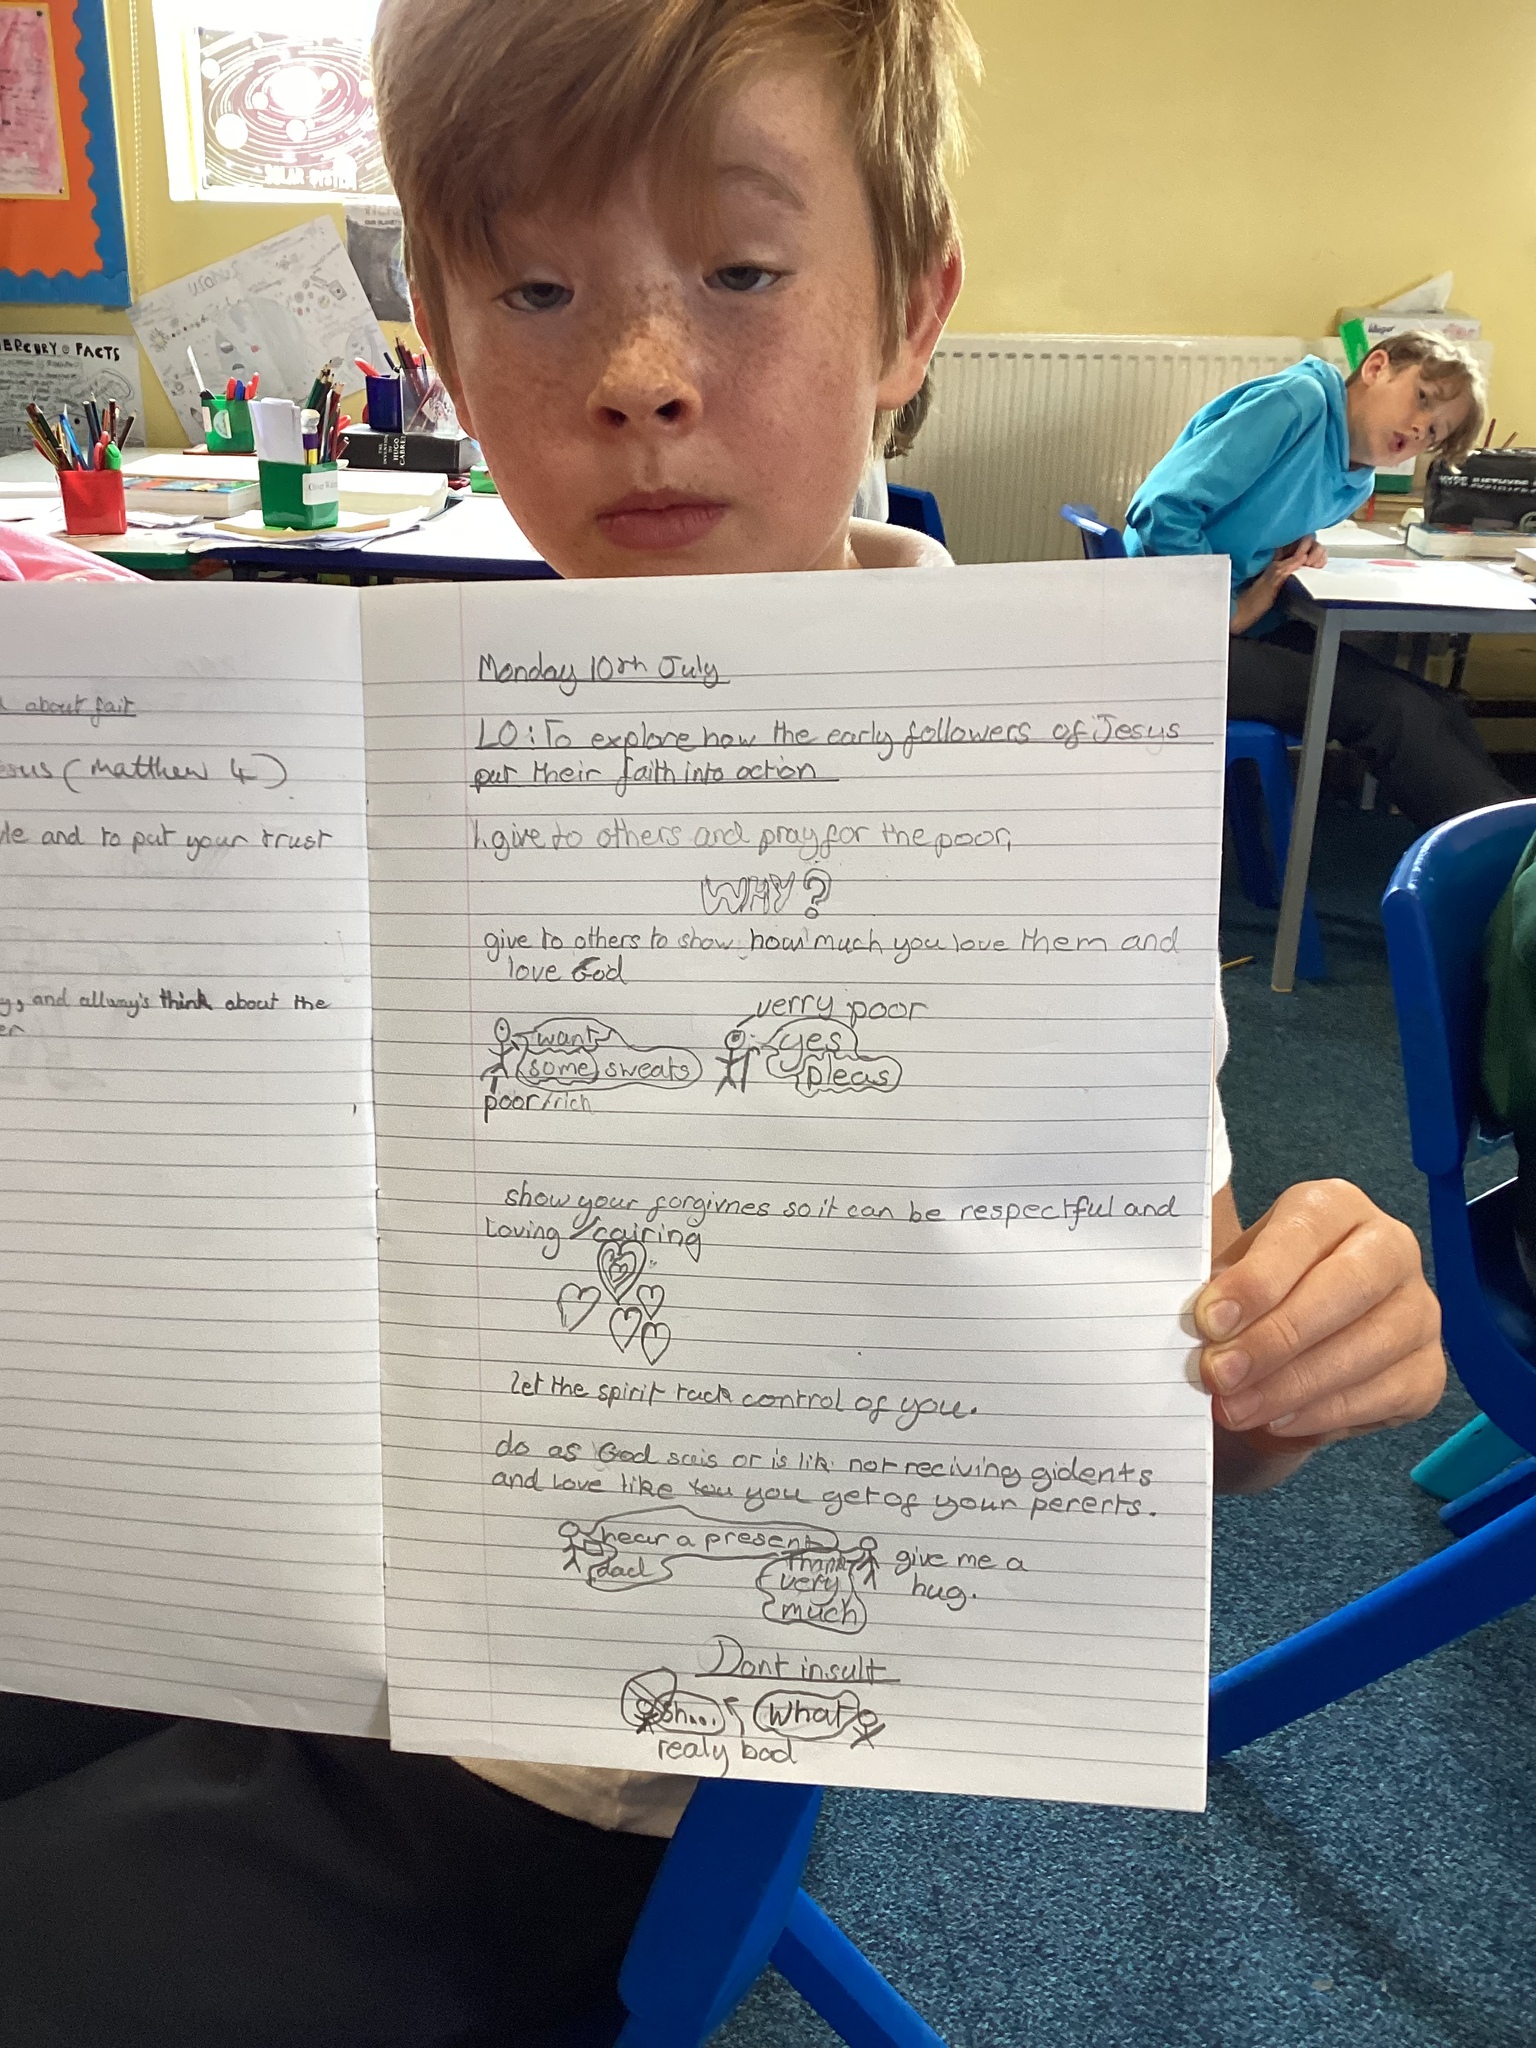 SOLAR SYSTEM
URANUS
MERCURY FACTS
THE
INVENTION
OF
HUGO
CABRET
about fait
esus (Matthew 4)
le and to put your trust
y, and allway's think about the
er
Monday 10th July
LO: To explore how the early followers of Jesys
put their faith into action
1. give to others and pray for the poor,
WHY?
give to others to show how much you love them and
love God
verry poor
want
some sweats
yes
pleas
poor/rich
show your forgivnes so it can be respectful and
Loving/cairing
let the spirit tack control of you.
do as God sais or is lik not reciving gidents
and love like you you get of your perents.
hear a present
dad
thank
very
much
give me a
hug.
Dont insult
sh...
what
realy bad